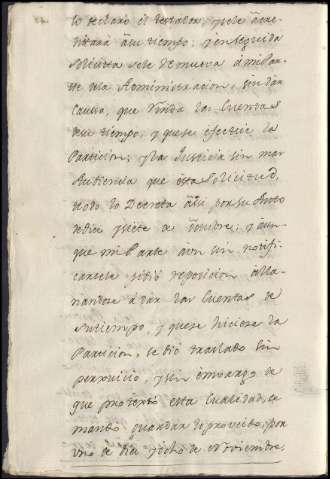 lo declaró el testador, y se le acre-
ditará a su tiempo; y en seguida
solicita se le remueva á mi Par-
te de la Administracion, sin dar
causa, que rinda las Cuentas
de su tiempo, y que se efectue la
Particion, y la Justicia sin mas
Audiencia que esta solicitud,
todo lo Decreta asi por su Auto
de dia siete de y aun-
que mi Parte aun sin notifi-
carsele pidió reposicion alla-
nandose á dar las Cuentas de
su tiempo, y que se hiciese la
Particion, se dió traslado sin
perjuicio, y sin embargo de
que protextó esta Cualidad, se
mandó guardar lo proveido, por
uno de dia y ocho de Noviembre,